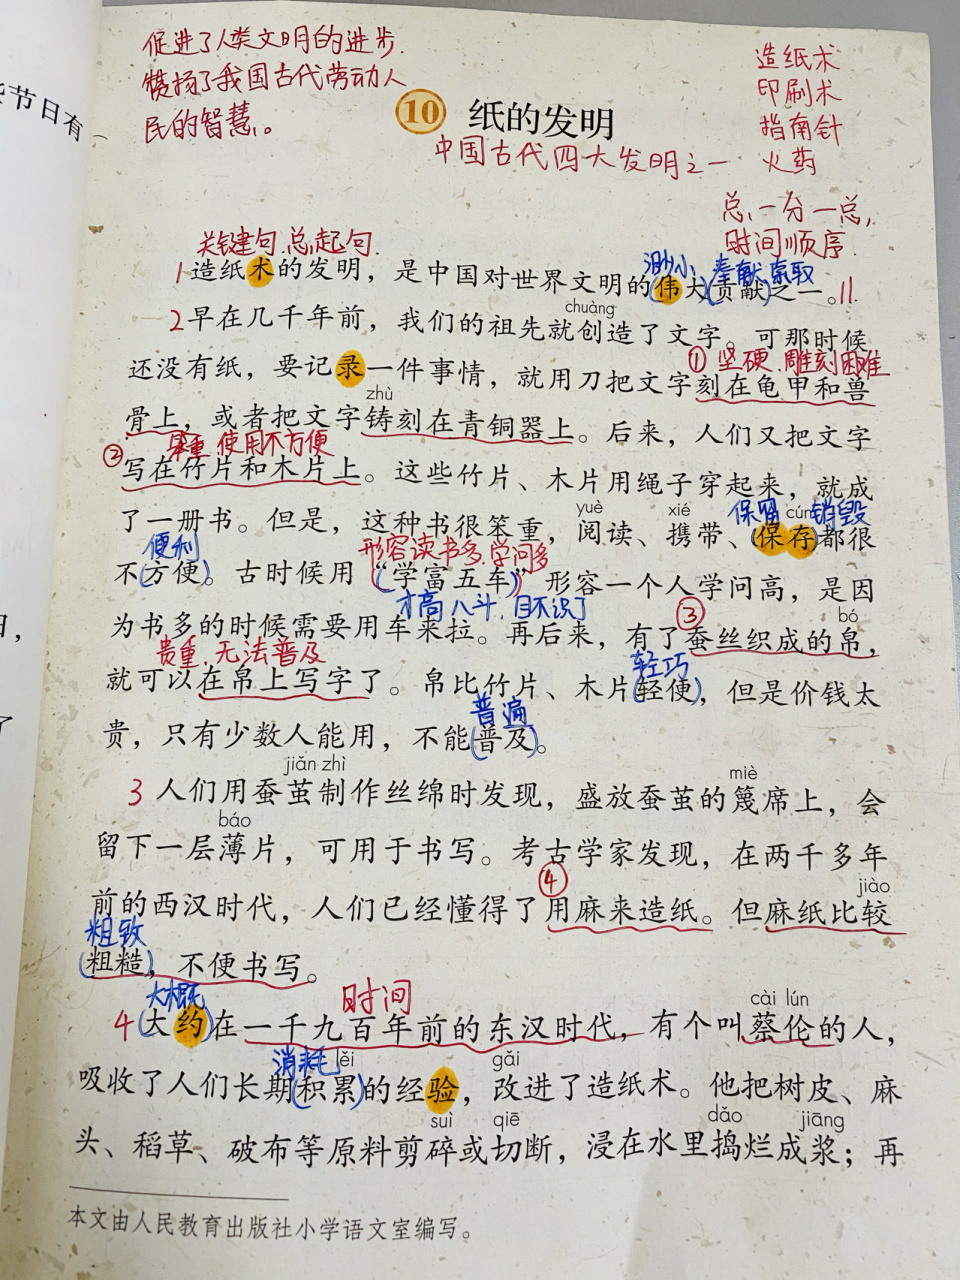 促进了人类文明的进步
赞扬了我国古代劳动人
民的智慧。
造纸术
印刷术
指南针
火药
些节日有
10 纸的发明
中国古代四大发明之一
总一分一总,
时间顺序
关键句.总起句.
渺小、奉献.索取
1造纸术的发明，是中国对世界文明的(伟大)(贡献)之一。11.
chuàng
2早在几千年前，我们的祖先就创造了文字。可那时候
①坚硬.雕刻困难
还没有纸，要记录一件事情，就用刀把文字刻在龟甲和兽
zhù
骨上，或者把文字铸刻在青铜器上。后来，人们又把文字
②笨重.使用不方便
写在竹片和木片上。这些竹片、木片用绳子穿起来，就成
yuè xié 保留 cún 销毁
了一册书。但是，这种书很笨重，阅读、携带、(保存)都很
便利 形容读书多.学问多
不(方便)。古时候用(“学富五车”)形容一个人学问高，是因
才高八斗.目不识丁 bó
为书多的时候需要用车来拉。再后来，有了③蚕丝织成的帛，
贵重.无法普及 轻巧
就可以在帛上写字了。帛比竹片、木片(轻便)，但是价钱太
普遍
贵，只有少数人能用，不能(普及)。
jiǎn zhì miè
3人们用蚕茧制作丝绵时发现，盛放蚕茧的篾席上，会
báo
留下一层薄片，可用于书写。考古学家发现，在两千多年
④ jiào
前的西汉时代，人们已经懂得了用麻来造纸。但麻纸比较
粗致
(粗糙)，不便书写。
大概 时间 cài lún
4(大约)在一千九百年前的东汉时代，有个叫蔡伦的人，
消耗 lěi gǎi
吸收了人们长期(积累)的经验，改进了造纸术。他把树皮、麻
suì qiē dǎo jiāng
头、稻草、破布等原料剪碎或切断，浸在水里捣烂成浆；再
本文由人民教育出版社小学语文室编写。